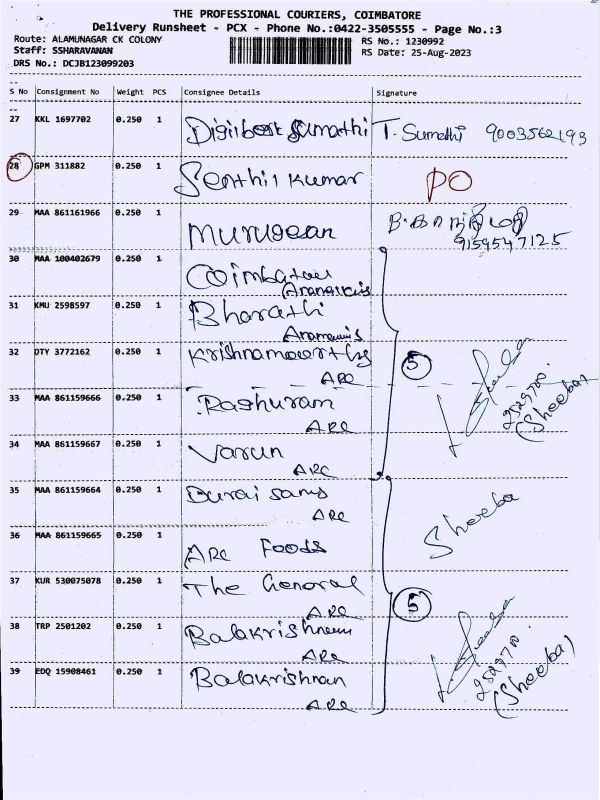 THE PROFESSIONAL COURIERS, COIMBATORE
Delivery Runsheet - PCX - Phone No.:0422-3505555 - Page No.:3
Route: ALAMUNAGAR CK COLONY RS No.: 1230992
Staff: SSHARAVANAN RS Date: 25-Aug-2023
DRS No.: DCJB123099203
S No Consignment No Weight PCS Consignee Details Signature
27 KKL 1697702 0.250 1 Sumathi T. Sumathi 9003562193
28 GPM 311882 0.250 1 Senthil Kumar PO
29 MAA 861161966 0.250 1 Murugesan
9159547125
30 MAA 100402679 0.250 1 Coimbatore
31 KMU 2598597 0.250 1 Bharathi
32 DTY 3772162 0.250 1 Krishnamoorthy
ARC
5
33 MAA 861159666 0.250 1 Raghuram
ARC
2529700
(Sheeba)
34 MAA 861159667 0.250 1 Varun
ARC
35 MAA 861159664 0.250 1 Durai samy
ARC
Sheeba
36 MAA 861159665 0.250 1 ARC Foods
37 KUR 530075078 0.250 1 The General
ARC
5
38 TRP 2501202 0.250 1 Balakrishnan
ARC
39 EDQ 15908461 0.250 1 Balakrishnan
ARC
2529700
(Sheeba)